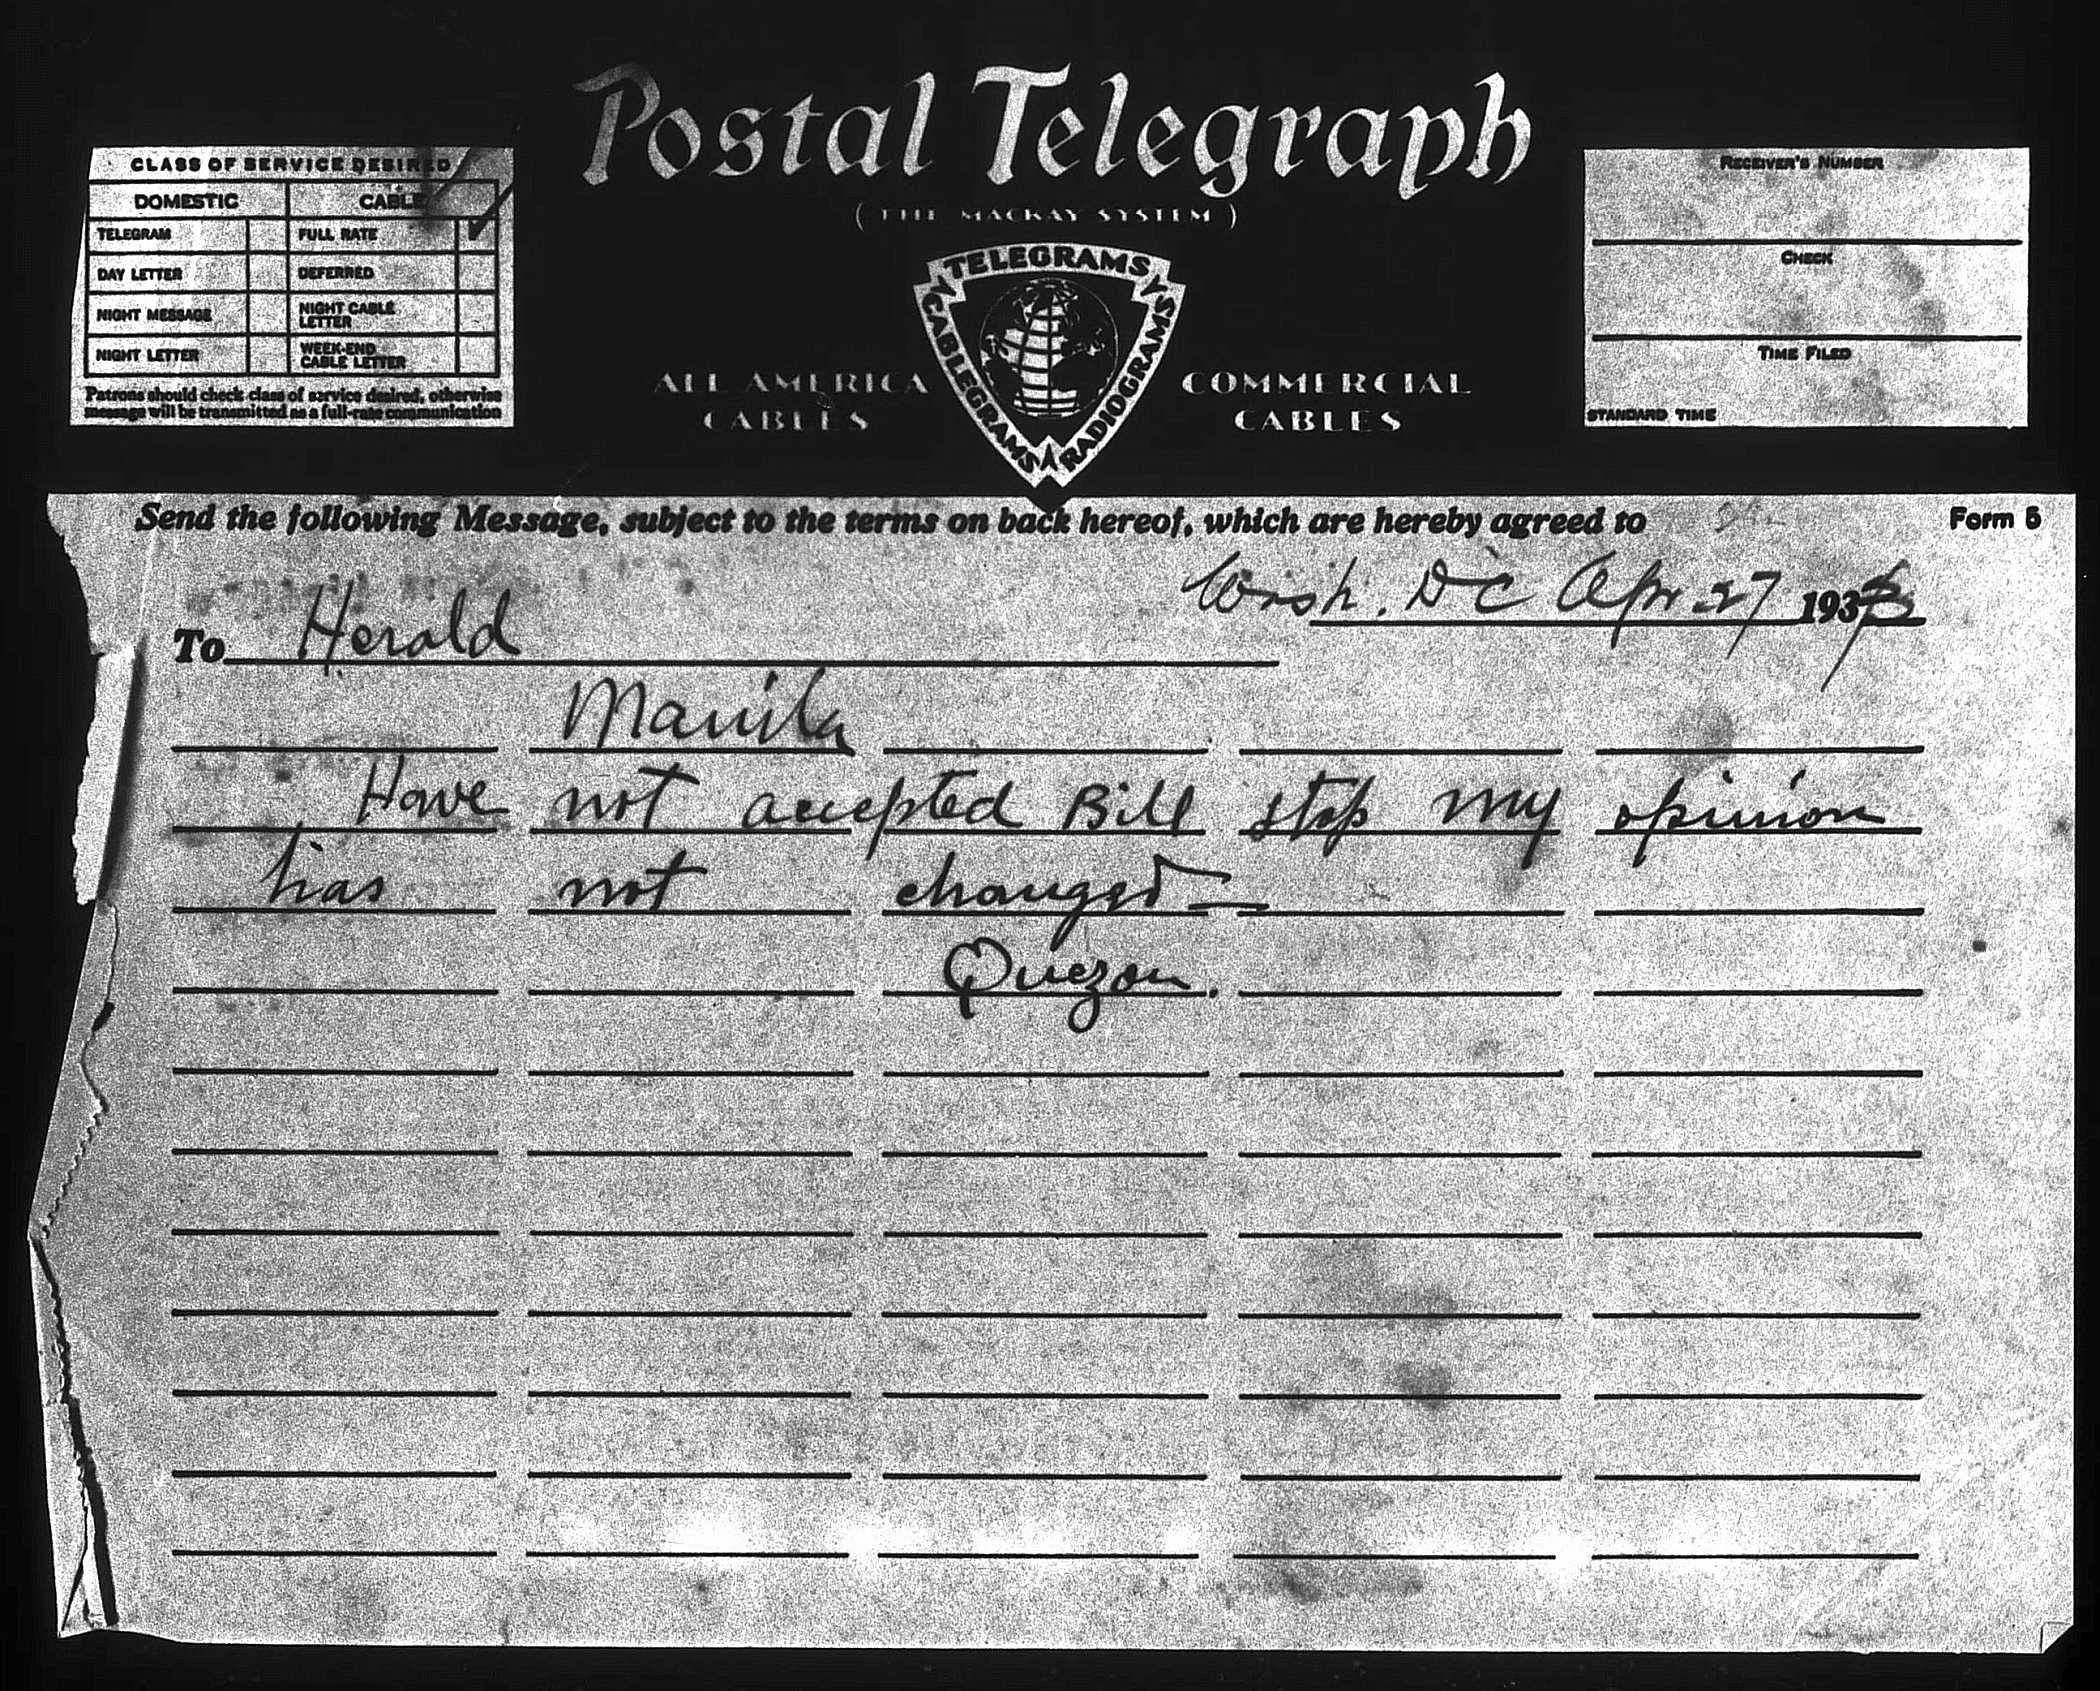 Postal Telegraph
( THE MACKAY SYSTEM )
CLASS OF SERVICE DESIRED
DOMESTIC CABLE
TELEGRAM FULL RATE
DAY LETTER DEFERRED
NIGHT MESSAGE NIGHT CABLE LETTER
NIGHT LETTER WEEK-END CABLE LETTER
Patrons should check class of service desired, otherwise
message will be transmitted as a full-rate communication
TELEGRAMS
CABLEGRAMS
RADIOGRAMS
ALL AMERICA
CABLES
COMMERCIAL
CABLES
RECEIVER'S NUMBER
CHECK
TIME FILED
STANDARD TIME
Send the following Message, subject to the terms on back hereof, which are hereby agreed to
Form 5
Wash. D C Apr 27 193
To Herald
Manila
Have not accepted Bill stop my opinion
has not changed—
Quezon.